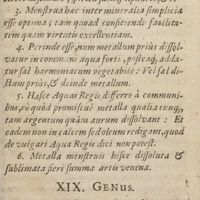 3. Menstrua hæc inter mineralia simplicia
esse optima; tam quoad conficiendi facilita-
tem quam virtutis excellentiam.
4. Perinde esse, num metallum priùs dissol-
vatur in communi aqua forti, posteaq; adda-
tur sal harmoniacum vegetabile: Vel sal di-
ctum priùs, & deinde metallum.
5. Hasce Aquas Regis differre à communi-
bus, eò quòd promiscuè metalla qualiacunq;,
tam argentum quàm aurum dissolvant: Et
eadem non in calcem sed oleum redigant, quod
de vulgari Aqua Regis dici non potest.
6. Metalla menstruis hisce dissoluta &
sublimata fieri summa artis venena.
XIX. GENUS.